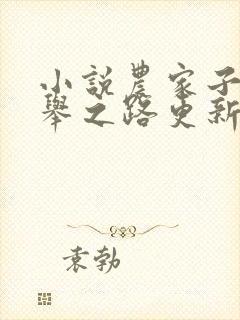 小說農家子
舉之路更新
袁勃